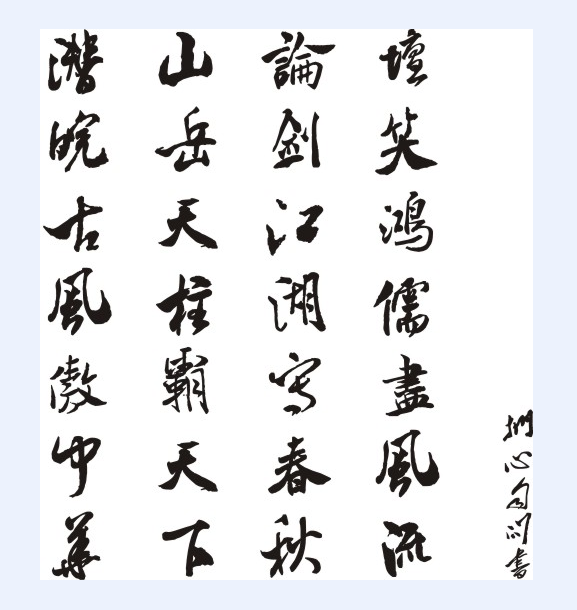 潛皖古風傲中華
山岳天柱霸天下
論劍江湖寫春秋
壇笑鴻儒盡風流
捫心自问書